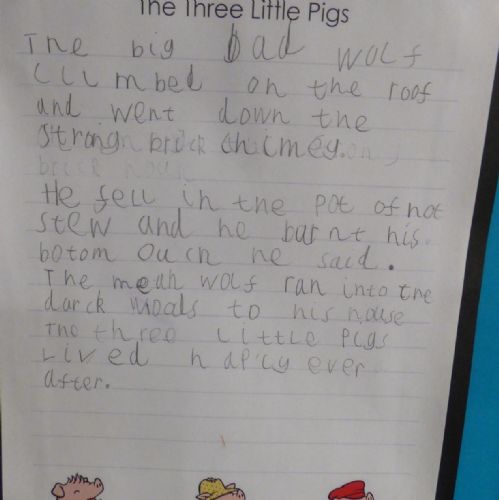 The Three Little Pigs
The big bad wolf
climbed on the roof
and went down the
strong brick chimey.
brick hous
He fell in the pot of hot
stew and he burnt his
botom ouch he said.
The mean wolf ran into the
darck woods to his house
The three little pigs
Lived hapily ever
after.